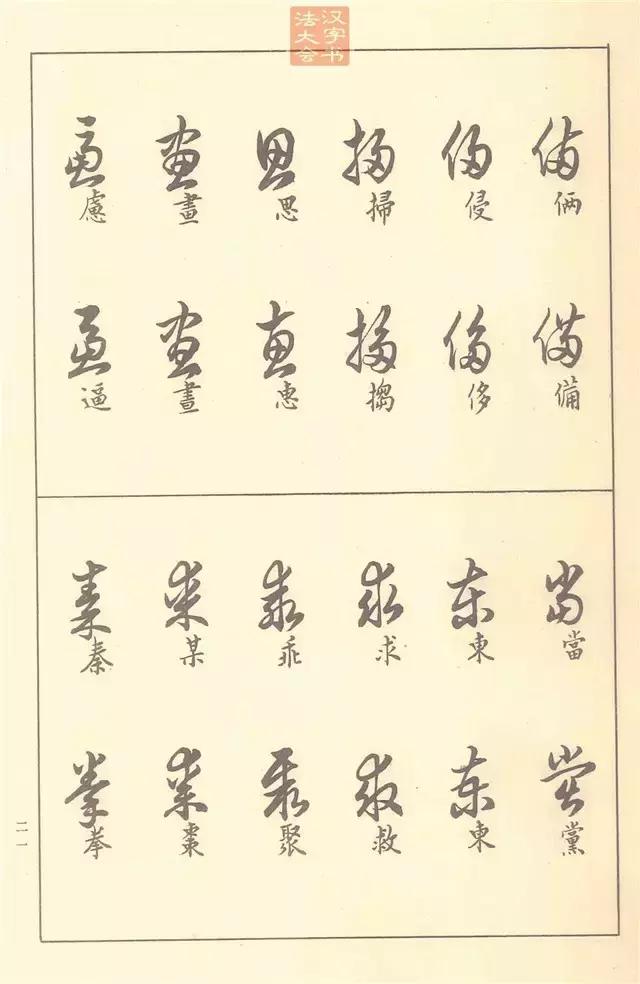 汉字书
法大会
倆 備
侵 侈
掃 搊
思 惠
畫 晝
慮 逼
當 黨
東 東
求 救
乖 聚
某 棗
秦 拳
二一